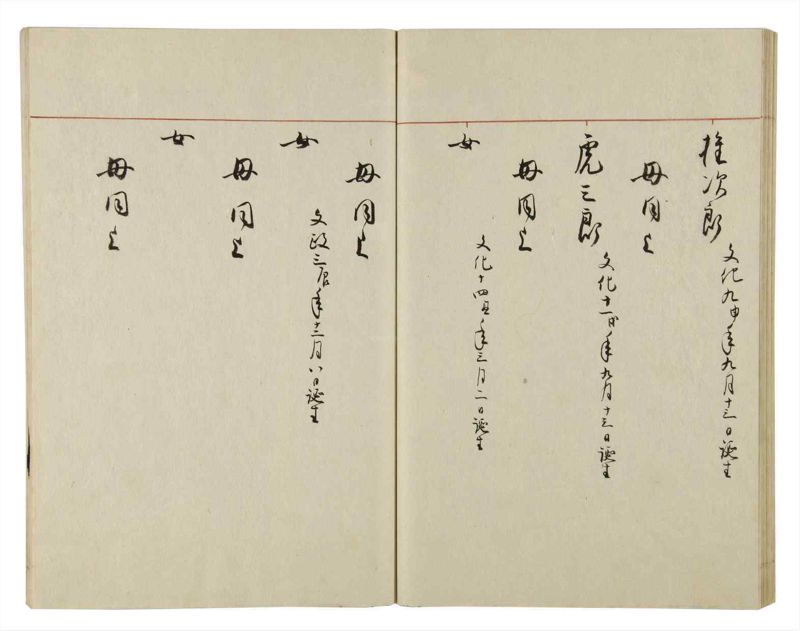 権次郎
文化九申年九月十三日誕生
母同上
虎三郎
文化十一戌年九月十三日誕生
母同上
女
文化十四丑年三月二日誕生
母同上
女
文政三辰年十二月八日誕生
母同上
女
母同上